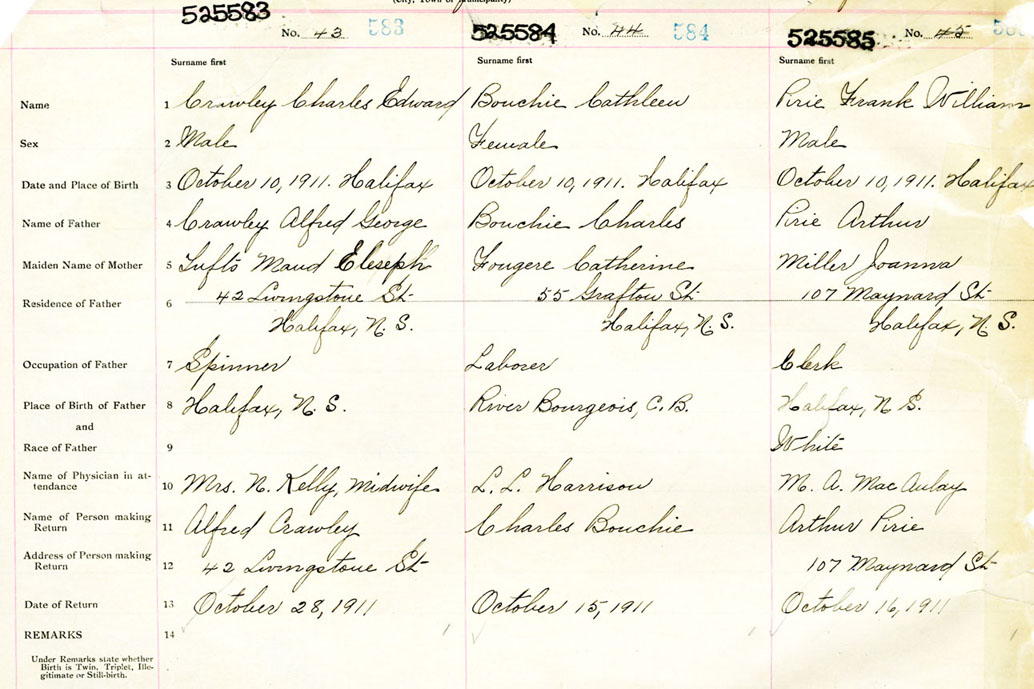 (City, Town or Municipality)
525583 525584 525585
No. 43 583 No. 44 584 No. 45
Surname first Surname first Surname first
Name 1 Crawley Charles Edward Bouchie Cathleen Pirie Frank William
Sex 2 Male Female Male
Date and Place of Birth 3 October 10, 1911. Halifax October 10, 1911. Halifax October 10, 1911. Halifax
Name of Father 4 Crawley Alfred George Bouchie Charles Pirie Arthur
Maiden Name of Mother 5 Tufts Maud Eleseph Fougere Catherine Miller Joanna
Residence of Father 6 42 Livingstone St 55 Grafton St 107 Maynard St
Halifax, N. S. Halifax, N. S. Halifax, N. S.
Occupation of Father 7 Spinner Laborer Clerk
Place of Birth of Father 8 Halifax, N. S. River Bourgeois, C. B. Halifax, N. S.
and
Race of Father 9 White
Name of Physician in at-
tendance 10 Mrs. N. Kelly, Midwife L. L. Harrison M. A. MacAulay
Name of Person making
Return 11 Alfred Crawley Charles Bouchie Arthur Pirie
Address of Person making
Return 12 42 Livingstone St 107 Maynard St
Date of Return 13 October 28, 1911 October 15, 1911 October 16, 1911
REMARKS 14
Under Remarks state whether
Birth is Twin, Triplet, Ille-
gitimate or Still-birth.